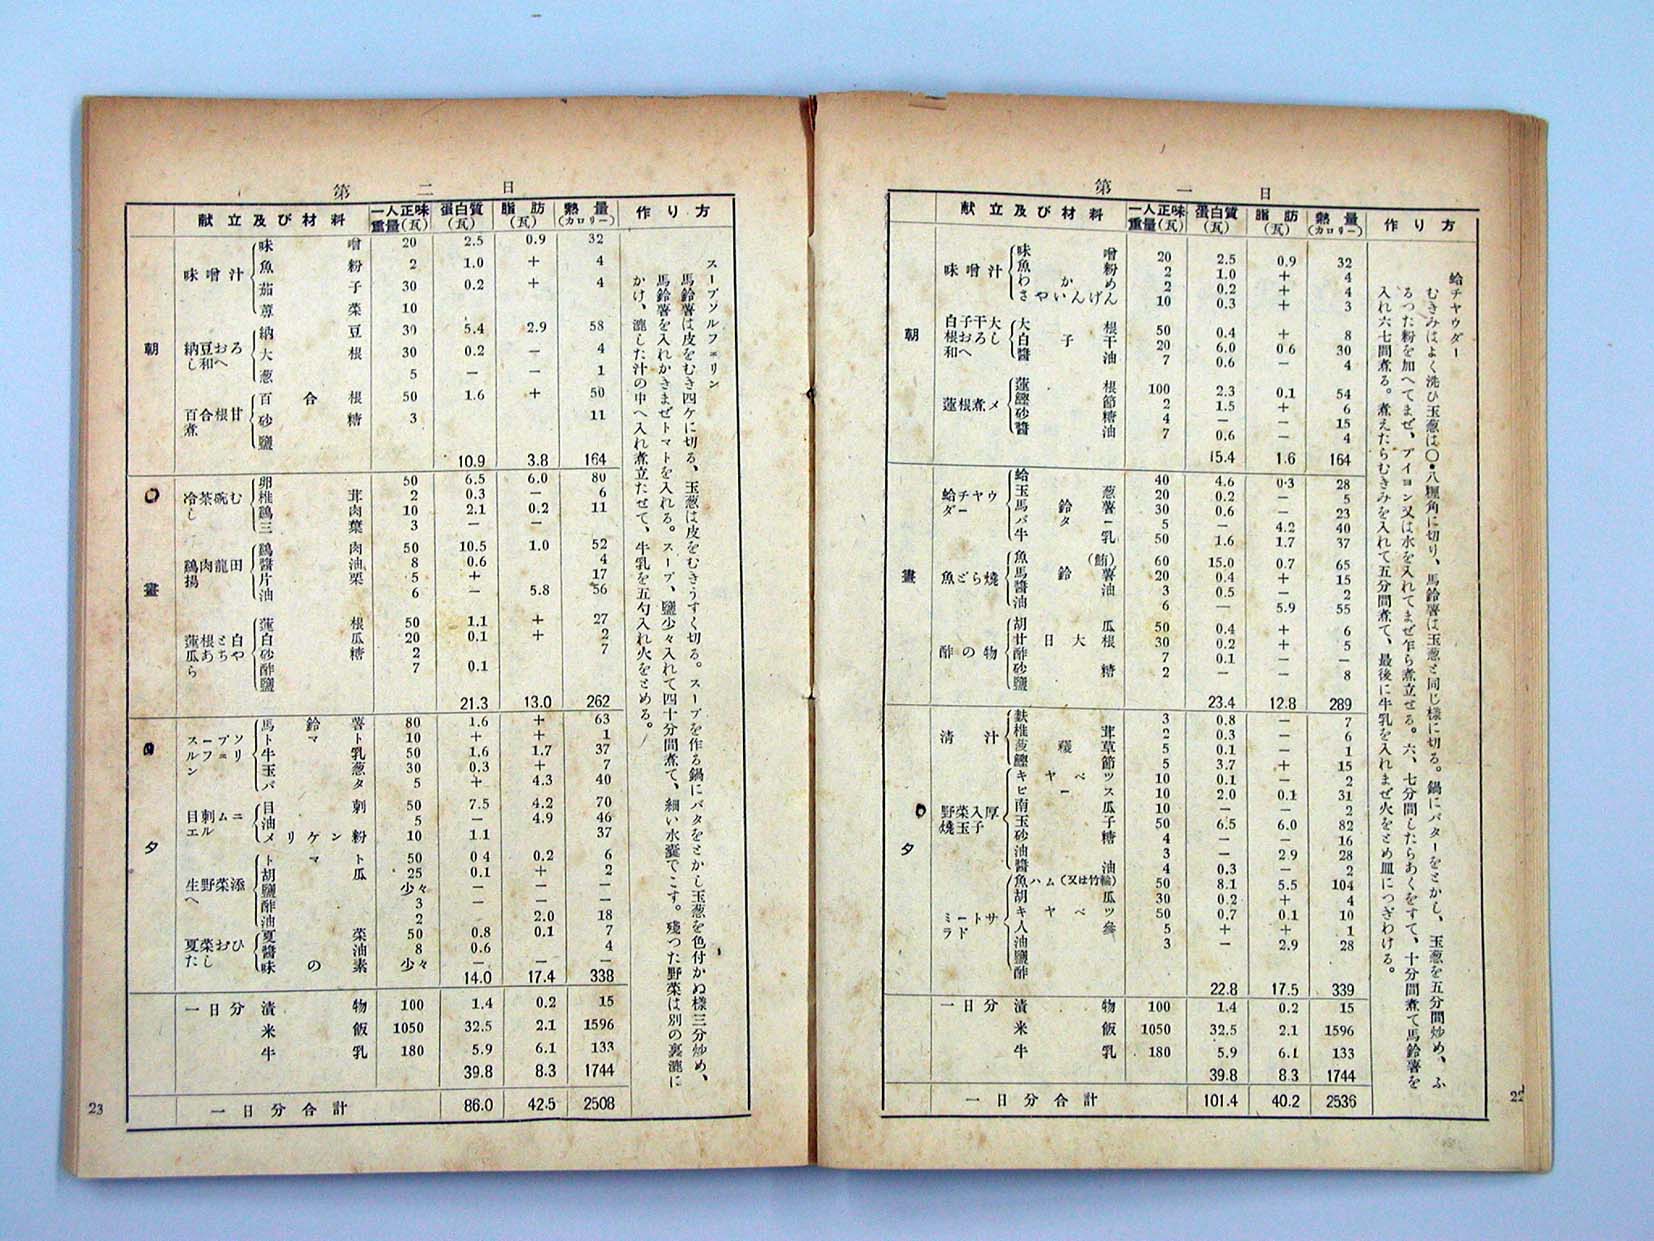 第一日
献立及び材料 一人正味重量(瓦) 蛋白質(瓦) 脂肪(瓦) 熱量(カロリー) 作り方
朝
味噌汁
味噌 20 2.5 0.9 32
魚粉 2 1.0 + 4
わかめ 2 0.2 + 4
さやいんげん 10 0.3 + 3
白子干大根おろし和へ
大根 50 0.4 + 8
白子干 20 6.0 0.6 30
醬油 7 0.6 — 4
蓮根煮〆
蓮根 100 2.3 0.1 54
鰹節 2 1.5 + 6
砂糖 4 — — 15
醬油 7 0.6 — 4
15.4 1.6 164
晝
蛤チヤウダー
蛤 40 4.6 0.3 28
玉葱 20 0.2 — 5
馬鈴薯 30 0.6 — 23
バター 5 — 4.2 40
牛乳 50 1.6 1.7 37
魚どら燒
魚(鮪) 60 15.0 0.7 65
馬鈴薯 20 0.4 + 15
醬油 3 0.5 — 2
油 6 — 5.9 55
酢の物
胡瓜 50 0.4 + 6
廿日大根 30 0.2 + 5
酢 7 0.1 — —
砂糖 2 — — 8
鹽
23.4 12.8 289
夕
清汁
麩 3 0.8 — 7
椎茸 2 0.3 — 6
草 5 0.1 — 1
鰹節 5 3.7 + 15
野菜入厚燒玉子
キヤベツ 10 0.1 — 2
ピース 10 2.0 0.1 31
南瓜 10 — — 2
玉子 50 6.5 6.0 82
砂糖 4 — — 16
油 3 — 2.9 28
醬油 4 0.3 — 2
ミートサラド
魚ハム(又は竹輪) 50 8.1 5.5 104
胡瓜 30 0.2 + 4
キヤベツ 50 0.7 0.1 10
人參 5 + + 1
油 3 — 2.9 28
鹽
酢
22.8 17.5 339
一日分 漬物 100 1.4 0.2 15
米飯 1050 32.5 2.1 1596
牛乳 180 5.9 6.1 133
39.8 8.3 1744
一日分合計 101.4 40.2 2536
蛤チヤウダー
むきみはよく洗ひ玉葱は〇・八糎角に切り、馬鈴薯は玉葱と同じ樣に切る。鍋にバターをとかし、玉葱を五分間炒め、ふ
るつた粉を加へてまぜ、ブイヨン又は水を入れてまぜ乍ら煮立せる。六、七分間したらあくをすて、十分間煮て馬鈴薯を
入れ六七間煮る。煮えたらむきみを入れて五分間煮て、最後に牛乳を入れまぜ火をとめ皿につぎわける。
22
第二日
献立及び材料 一人正味重量(瓦) 蛋白質(瓦) 脂肪(瓦) 熱量(カロリー) 作り方
朝
味噌汁
味噌 20 2.5 0.9 32
魚粉 2 1.0 + 4
茄子 30 0.2 + 4
菜 10
納豆おろし和へ
納豆 30 5.4 2.9 58
大根 30 0.2 — 4
葱 5 — — 1
百合根甘煮
百合根 50 1.6 + 50
砂糖 3 11
鹽
10.9 3.8 164
晝
冷茶碗むし
卵 50 6.5 6.0 80
椎茸 2 0.3 — 6
鷄肉 10 2.1 0.2 11
三葉 3 — —
鷄肉龍田揚
鷄肉 50 10.5 1.0 52
醬油 8 0.6 4
片栗 5 + 17
油 6 — 5.8 56
蓮根と白瓜あちやら
蓮根 50 1.1 + 27
白瓜 20 0.1 + 2
砂糖 2 7
酢 7 0.1
鹽
21.3 13.0 262
夕
スープソルフエリン
馬鈴薯 80 1.6 + 63
トマト 10 + + 1
牛乳 50 1.6 1.7 37
玉葱 30 0.3 + 7
バタ 5 + 4.3 40
目刺ムニエル
目刺 50 7.5 4.2 70
油 5 — 4.9 46
メリケン粉 10 1.1 37
生野菜添へ
トマト 50 0.4 0.2 6
胡瓜 25 0.1 + 2
鹽 少々 — —
酢 3 — —
油 2 2.0 18
夏菜おひたし
夏菜 50 0.8 0.1 7
醬油 8 0.6 — 4
味の素 少々 — —
14.0 17.4 338
一日分 漬物 100 1.4 0.2 15
米飯 1050 32.5 2.1 1596
牛乳 180 5.9 6.1 133
39.8 8.3 1744
一日分合計 86.0 42.5 2508
スープソルフエリン
馬鈴薯は皮をむき四ケに切る、玉葱は皮をむきうすく切る。スープを作る鍋にバタをとかし玉葱を色付かぬ樣三分炒め、
馬鈴薯を入れかきまぜトマトを入れる。スープ、鹽少々入れて四十分間煮て、細い水嚢でこす。殘つた野菜は別の裏漉に
かけ、漉した汁の中へ入れ煮立たせて、牛乳を五勺入れ火をとめる。
23